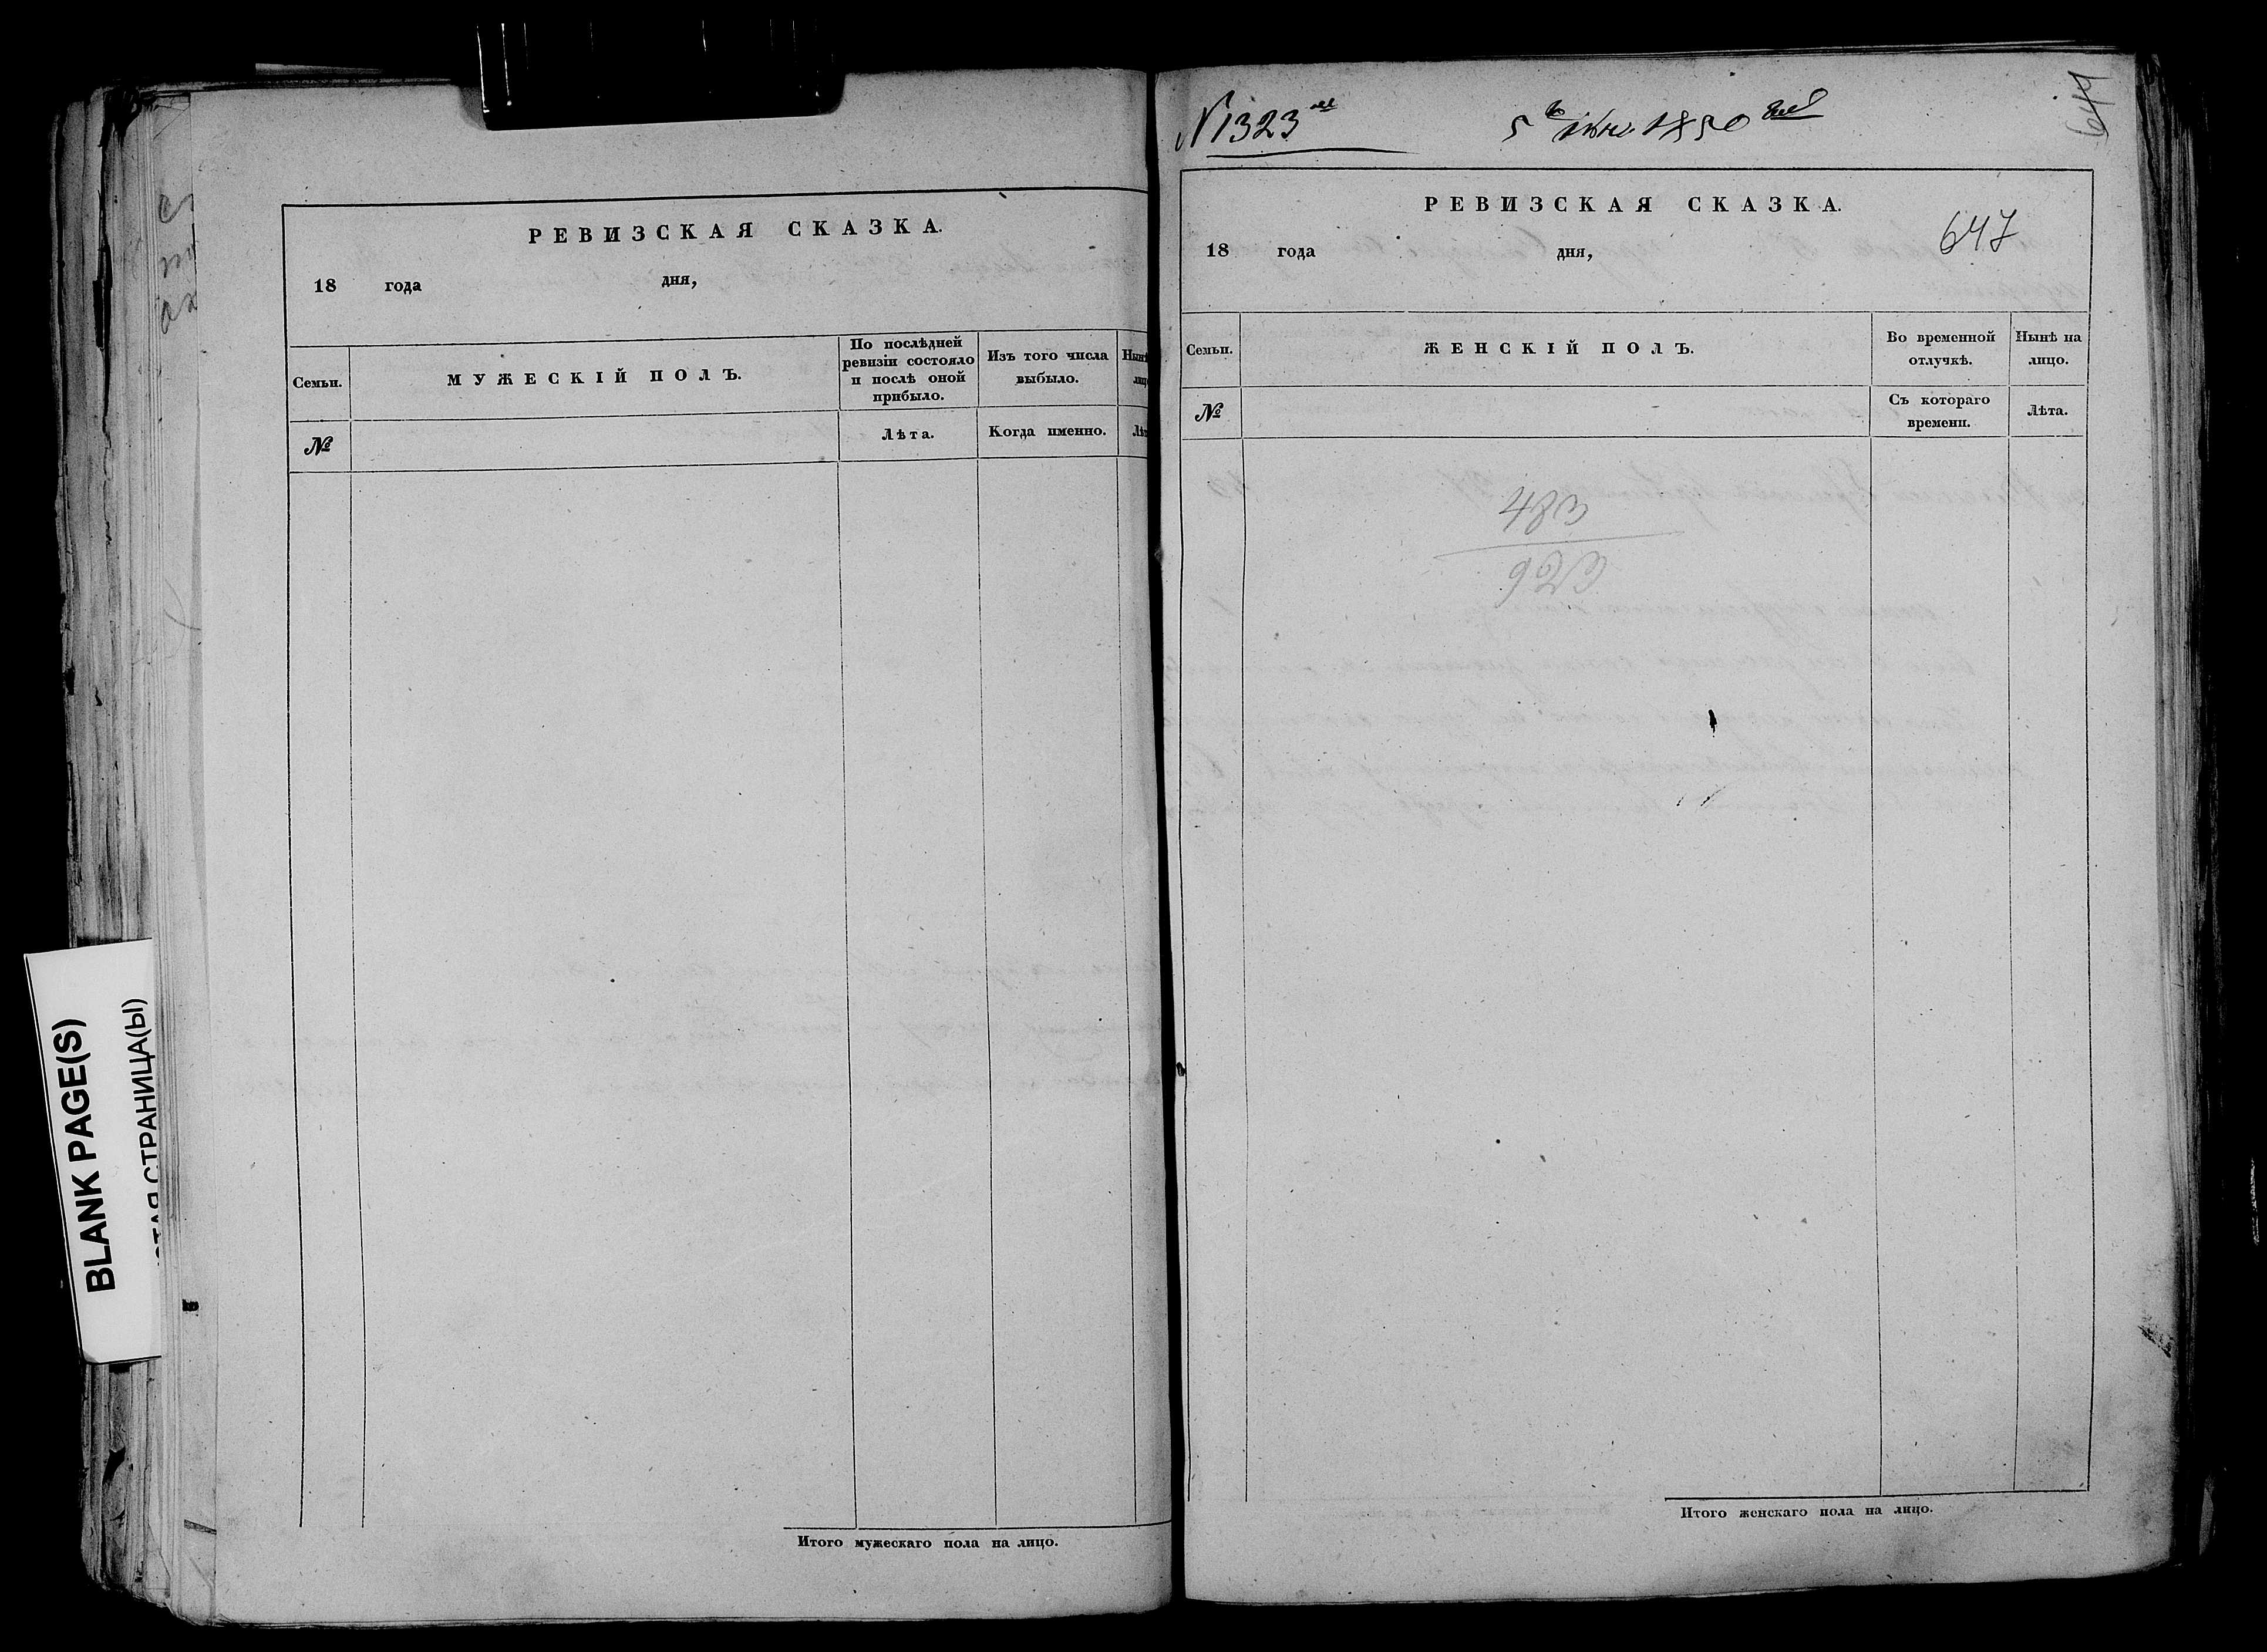 РЕВИЗСКАЯ СКАЗКА.
18 года дня,
Семьи. МУЖЕСКІЙ ПОЛЪ. По послѣдней ревизіи состояло и послѣ оной прибыло. Изъ того числа выбыло.
№ Лѣта. Когда именно.
Итого мужескаго пола на лицо.
BLANK PAGE(S)
СТРАНИЦА(Ы)
N 1323
5 1850
РЕВИЗСКАЯ СКАЗКА.
647
18 года дня,
Семьи. ЖЕНСКІЙ ПОЛЪ. Во временной отлучкѣ. Нынѣ на лицо.
№ Съ котораго времени. Лѣта.
483
Итого женскаго пола на лицо.